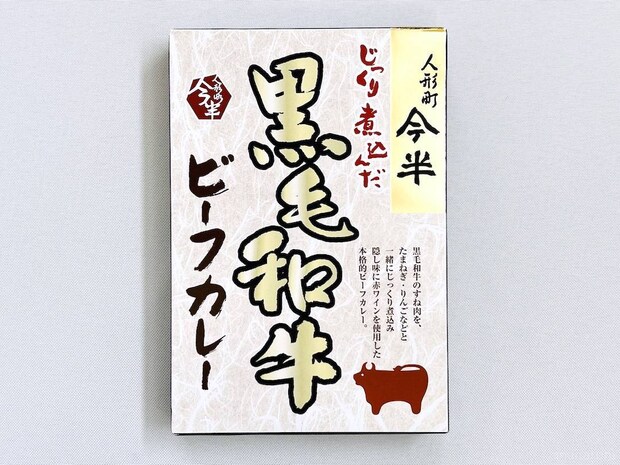 人形町
今半
じっくり煮込んだ
黒毛和牛
ビーフカレー
人形町
今半
黒毛和牛のすね肉を、
たまねぎ・りんごなどと
一緒にじっくり煮込み
隠し味に赤ワインを使用した
本格的ビーフカレー。